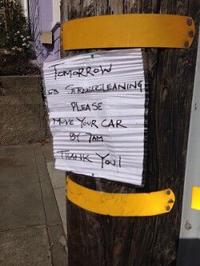 TOMORROW
IS STREETCLEANING
PLEASE
MOVE YOUR CAR
BY 7AM
THANK YOU!